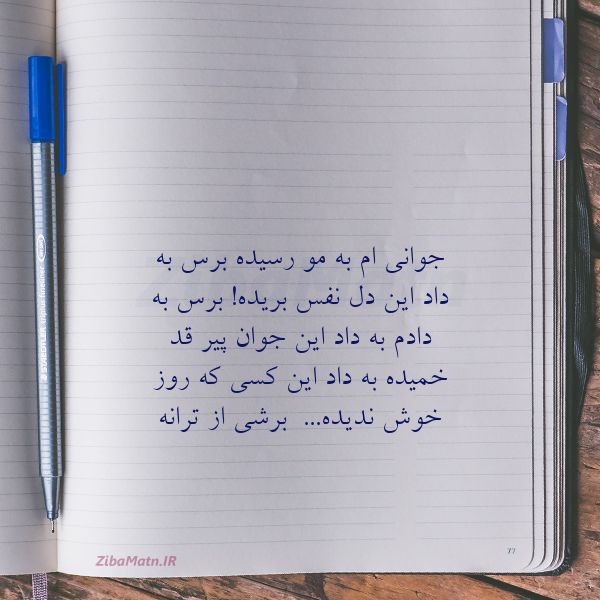 جوانی ام به مو رسیده برس به
داد این دل نفس بریده! برس به
دادم به داد این جوان پیر قد
خمیده به داد این کسی که روز
خوش ندیده... برشی از ترانه
ZibaMatn.IR
77